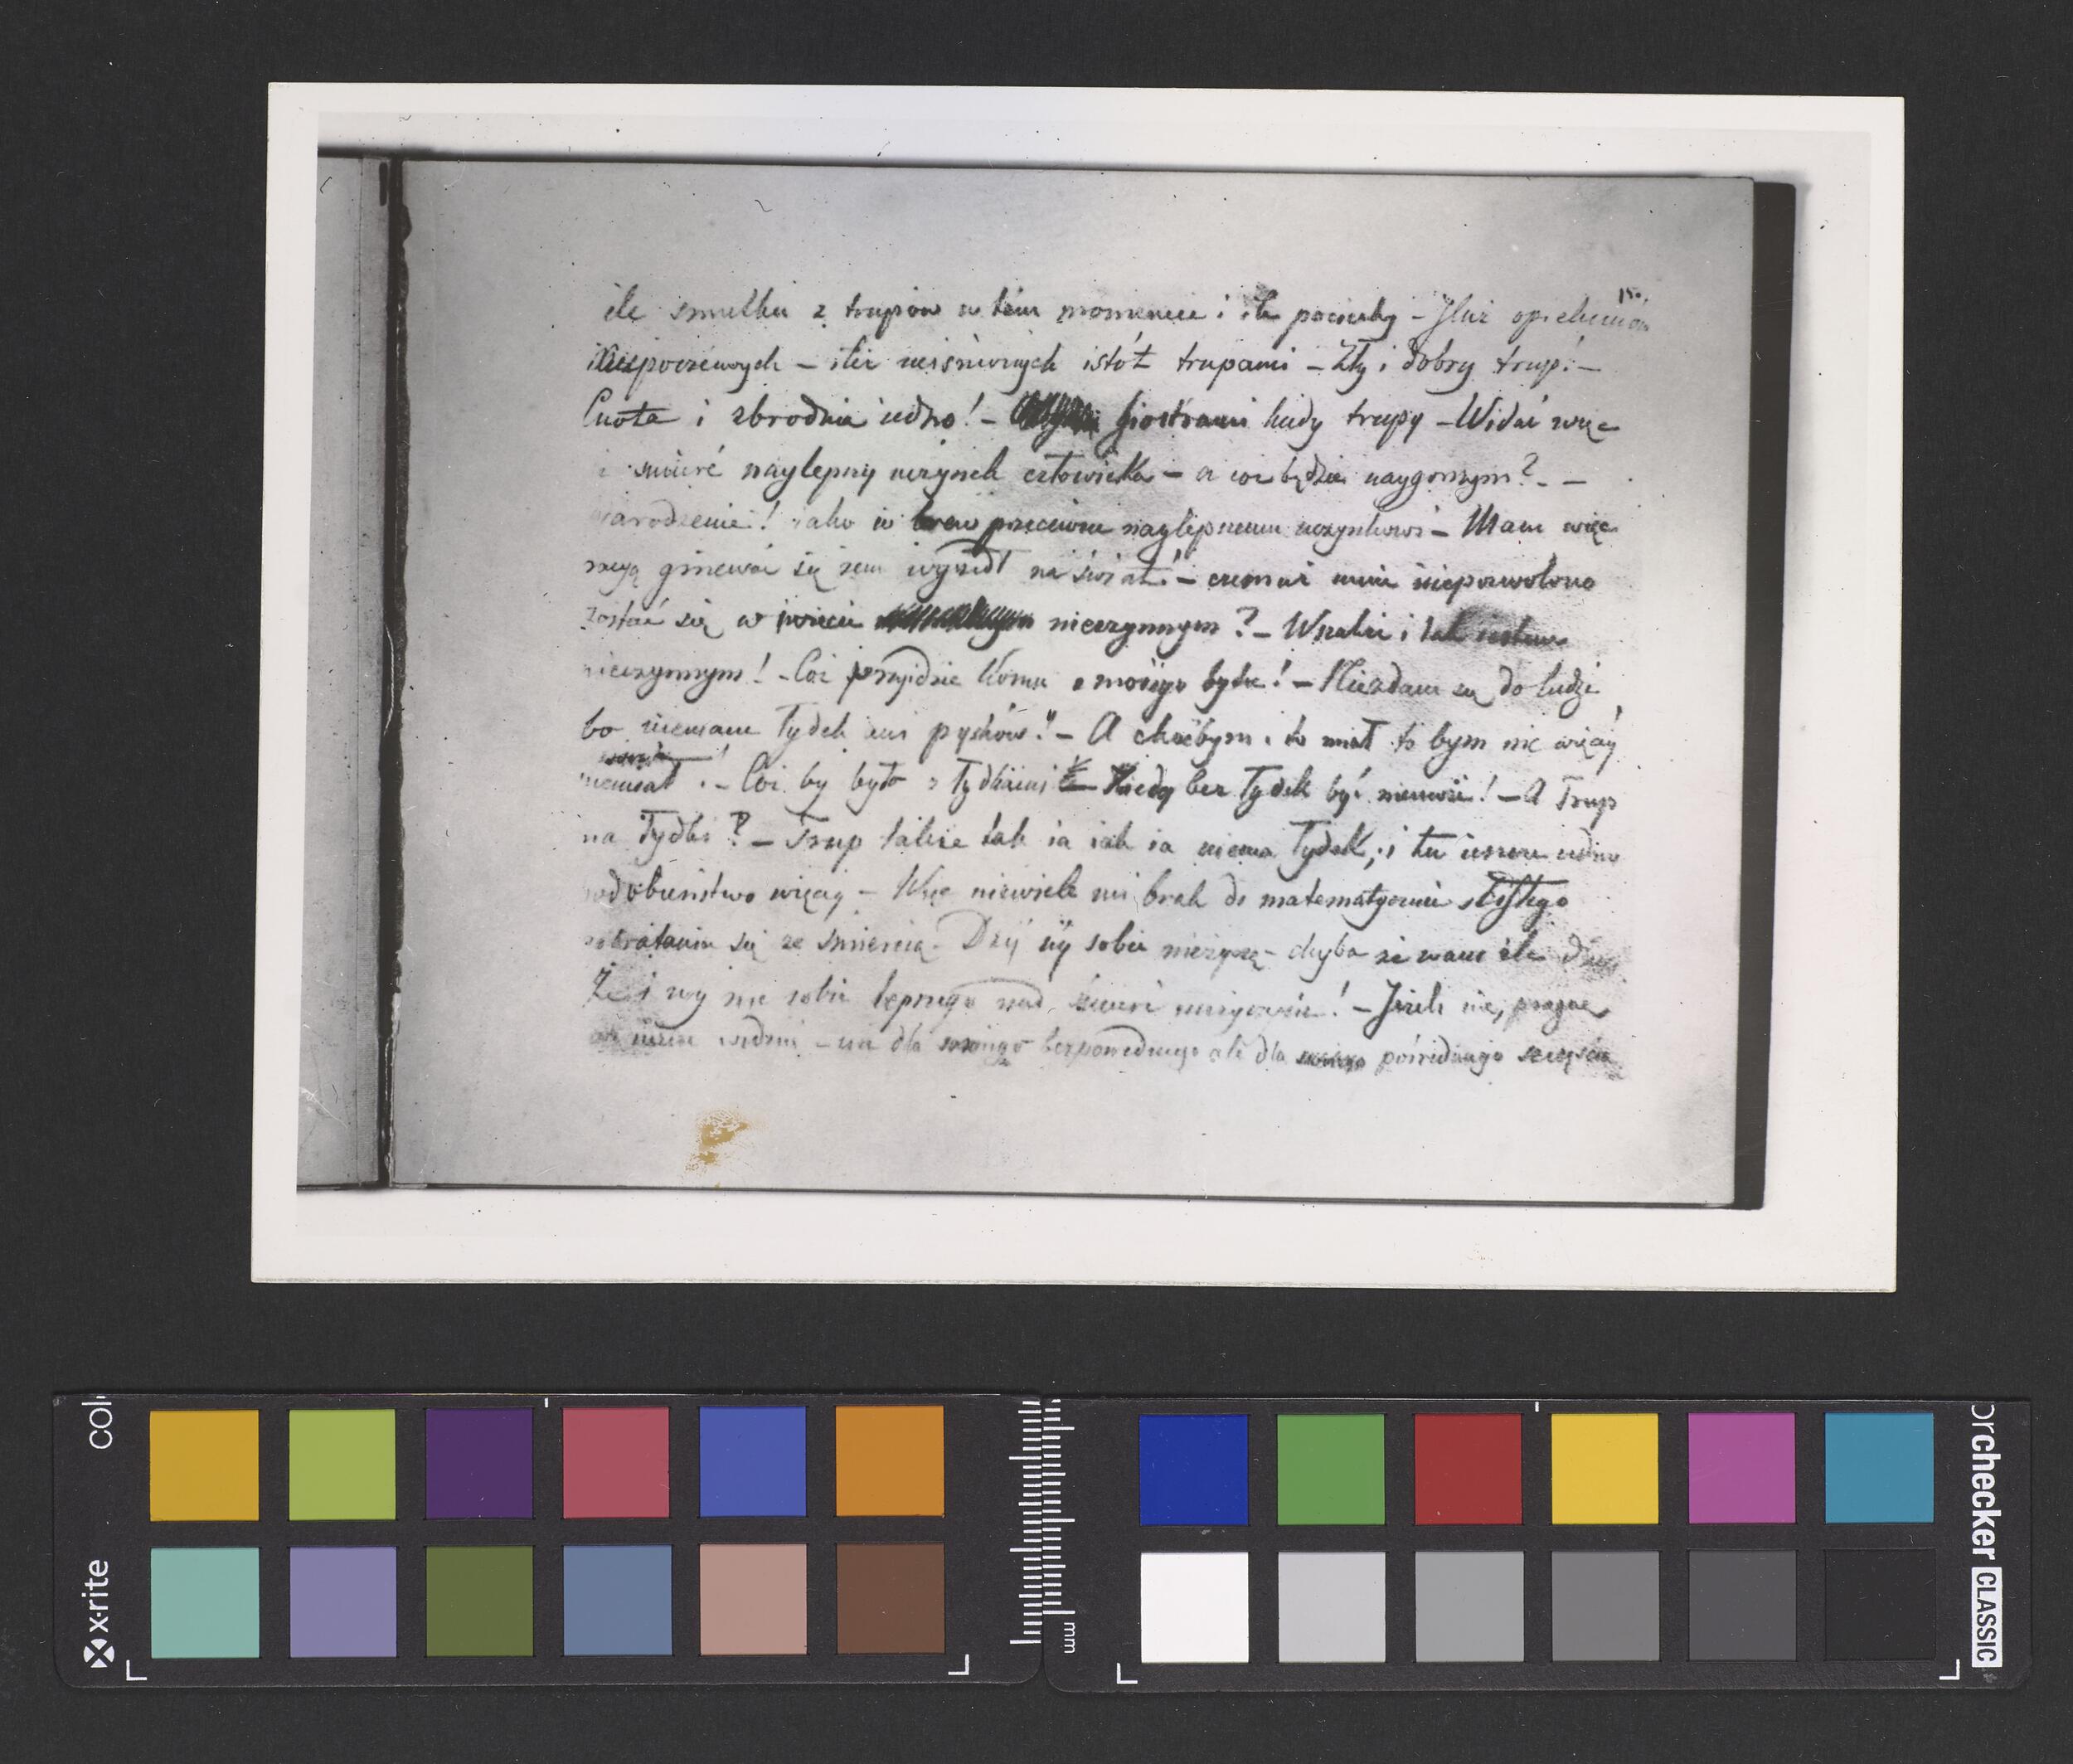 ile smutku z trupów w tém momencie i ile pociechy – Iluż opiekunów
niepoczciwych – ileż nieśmiernych istót trupami – Zły i dobry trup! –
Cnota i zbrodnia iedno! – Siostrami kiedy trupy – Widać więc
i śmierć naylepszy uczynek człowieka – a coż będzie naygorszym? – –
narodzenie! iako iż wrew przeciwne naylepszemu uczynkowi – Mam więc
racyą gniewać się żem wyszedł na świat! – czemuż mnie niepozwolono
zostać się w świecie nieczynnym? – Wszakże i tak iestem
nieczynnym! – Coż przyidzie komu z moiego bytu! – Niezdam się do ludzi
bo niemam łydek ani pysków!! – A choćbym i to miał to bym nic więcéy
niemiał. – Coż by było z łydkami – Kiedy bez łydek być niemoże! – A Trup
ma łydki? – Trup także tak ia iak ia niema łydek, i tu ieszcze iedno
podobieństwo więcéy – Więc niewiele mi brak do matematycznie ścisłego
zbratania się ze śmiercią – Dziś iéy sobie nieżyczę – chyba że wam źle dzieci
Że i wy nic sobie lepszego nad śmierć nieżyczycie! – Jeżeli nie, pragnę
was ieszcze widzieć – nie dla mojego bezpośredniego ale dla pośredniego szczęścia
150.
x·rite
col
mm
orchecker CLASSIC